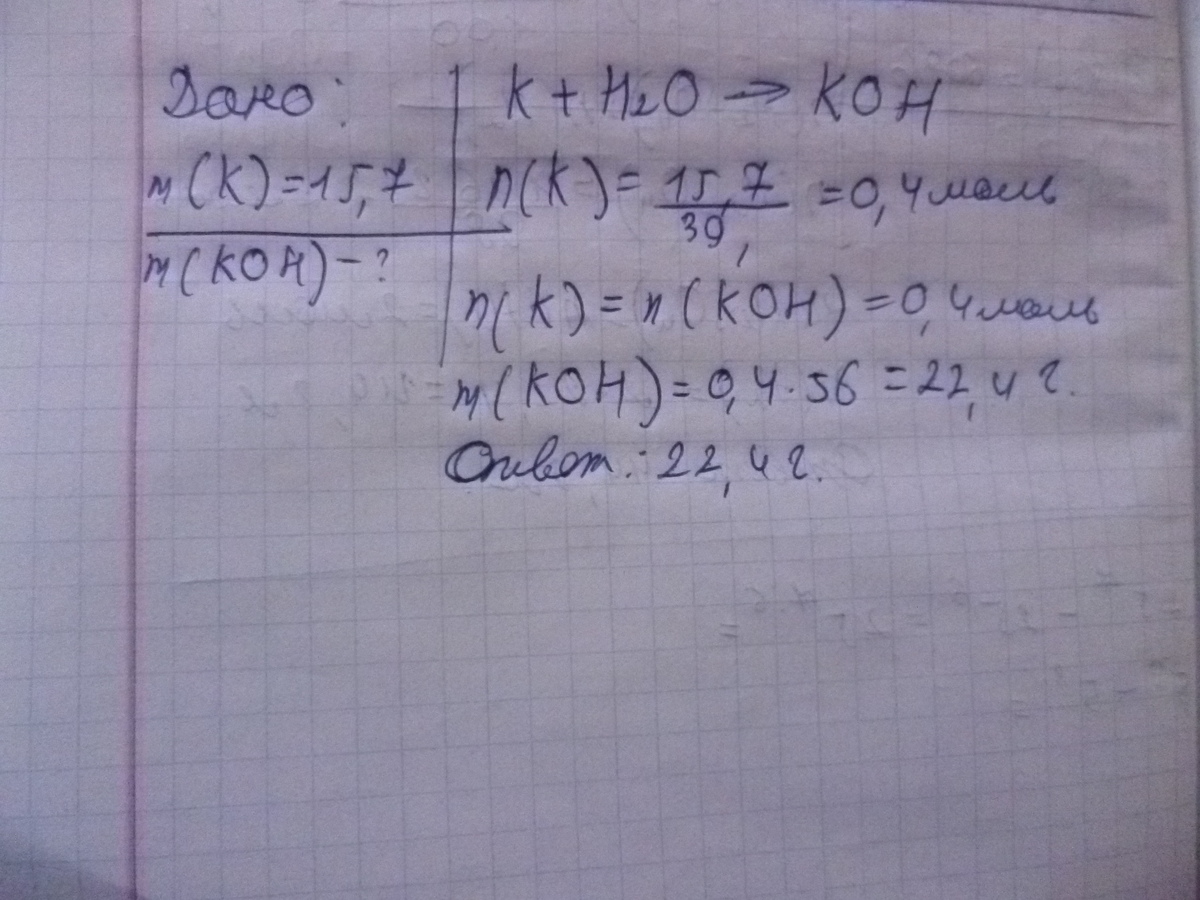 Дано:
m(K)=15,7
m(KOH)-?
K + H2O → KOH
n(K) = 15,7/39, = 0,4 моль
n(K) = n(KOH) = 0,4 моль
m(KOH) = 0,4·56 = 22,4 г.
Ответ.: 22,4 г.